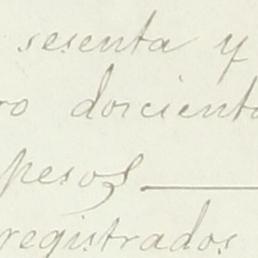 sesenta y
ro doscient
pesos
registrados